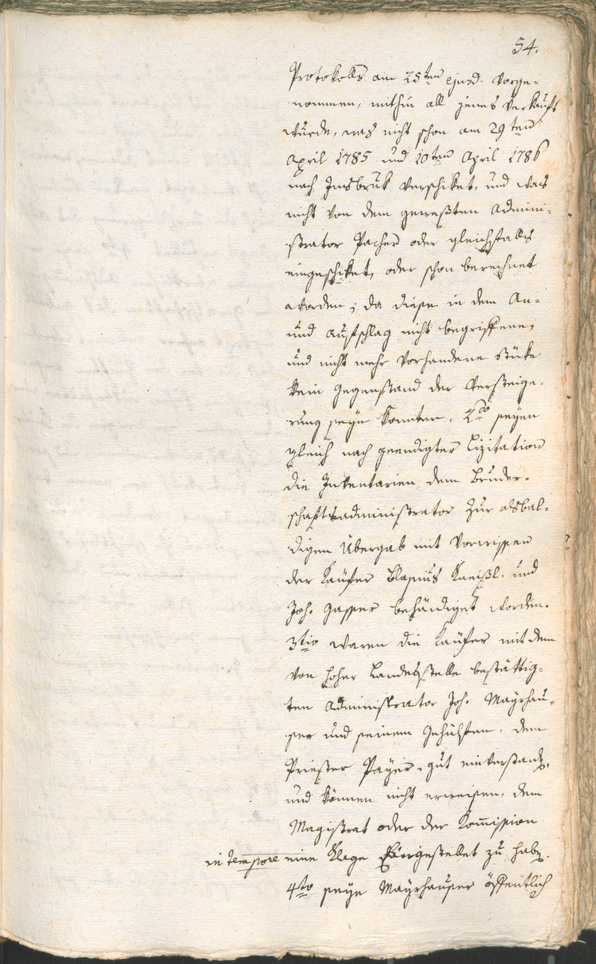 54.
Protokolls am 25ten ejusd. vorge-
nommen, mithin all jenes verkauft
wurde, was nicht schon am 29ten
April 1785 und 10ten April 1786
nach Insbruk verschiket, und was
nicht von dem geweßten Admini-
strator Pacher oder gleichfalls
eingeschiket, oder schon berechnet
worden; da diese in dem An-
und Aufschlag nicht begriffene,
und nicht mehr vorhandene Stüke
kein Gegenstand der Versteige-
rung seyn konnten. 2do seyen
gleich nach geendigter Lizitation
die Inventarien dem Bruder-
schaftsadministrator zur alsbal-
digen Übergab mit Vorwissen
der Käufer Blasius Kneißl und
Joh. Gasser behändiget worden.
3tio waren die Käufer mit dem
von hoher Landesstelle bestättig-
ten Administrator Joh. Mayrhau-
ser und seinem Gehülfen, dem
Priester Payer, gut einverstand.
und können nicht erweisen, dem
Magistrat oder der Kommission
in tempore eine Klage vorgestellet zu hab.
4to seye Mayrhauser öffentlich